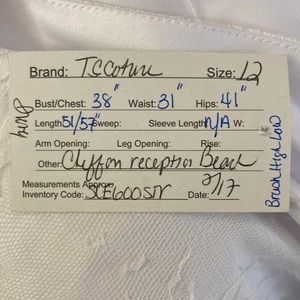 Brand: T.C Coture Size: 12
Bust/Chest: 38" Waist: 31" Hips: 41"
Length: 51/57" Sweep: Sleeve Length: N/A W:
Arm Opening: Leg Opening: Rise:
Other: Chiffon reception Beach
Measurements Approx.
Inventory Code: Date: 2/17
High Low